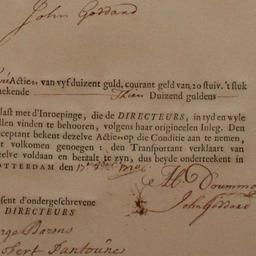 John Goddard
Actien van vyf duizent guld, courant geld van 20 stuiv. 't stuk
ekende Thien Duizend guldens
last met d'Inroepinge, die de DIRECTEURS, in tyd en wyle
llen vinden te behooren, volgens haar origineelen Inleg. Den
cceptant bekent dezelve Actien op die Conditie aan te nemen,
t volkomen genoegen: den Transportant verklaart van
zelve voldaan en betaalt te zyn, dus beyde onderteekent in
OTTERDAM den
John Goddard
sent d'ondergeschrevene
DIRECTEURS
rge Barons
obert Dantoune